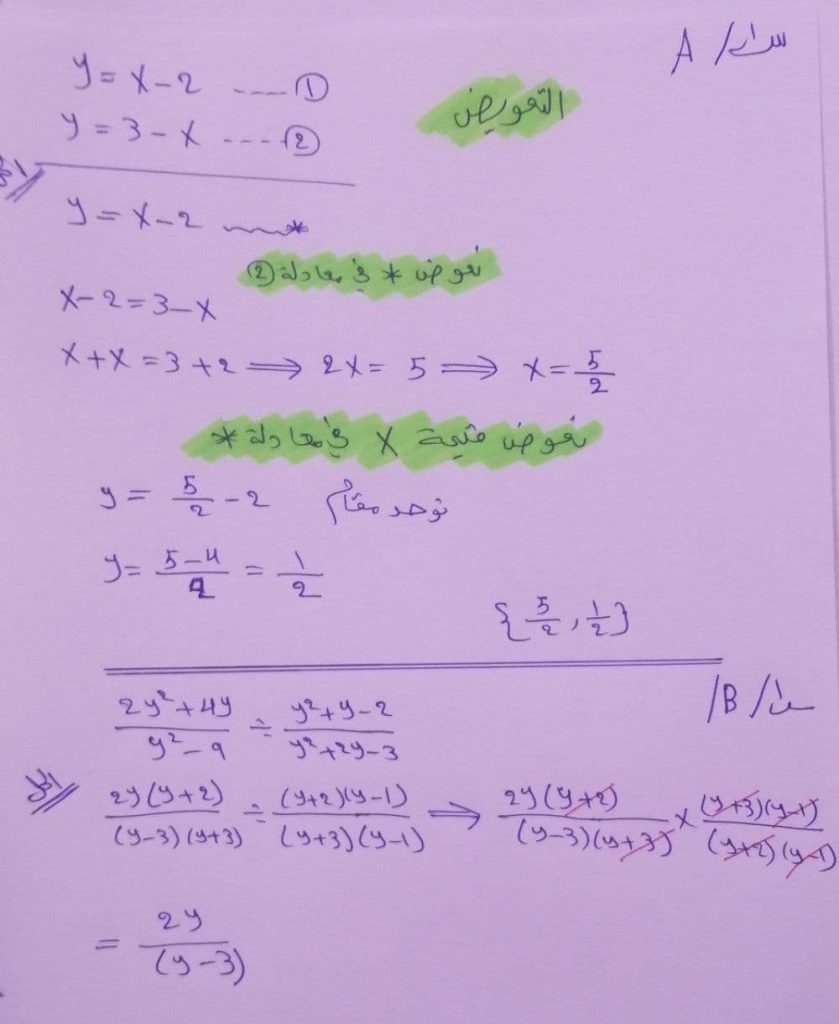 س١/ A
y = x - 2 ---- ①
التعويض
y = 3 - x ---- ②
ج/
y = x - 2 ---- *
نعوض * في معادلة ②
x - 2 = 3 - x
x + x = 3 + 2 ⟹ 2x = 5 ⟹ x = 5/2
نعوض قيمة x في معادلة *
y = 5/2 - 2 نوحد مقام
y = (5-4)/2 = 1/2
{5/2, 1/2}
س١/ B/
(2y²+4y)/(y²-9) ÷ (y²+y-2)/(y²+2y-3)
ج/
2y(y+2)/(y-3)(y+3) ÷ (y+2)(y-1)/(y+3)(y-1) ⟹ 2y(y+2)/(y-3)(y+3) × (y+3)(y-1)/(y+2)(y-1)
= 2y/(y-3)